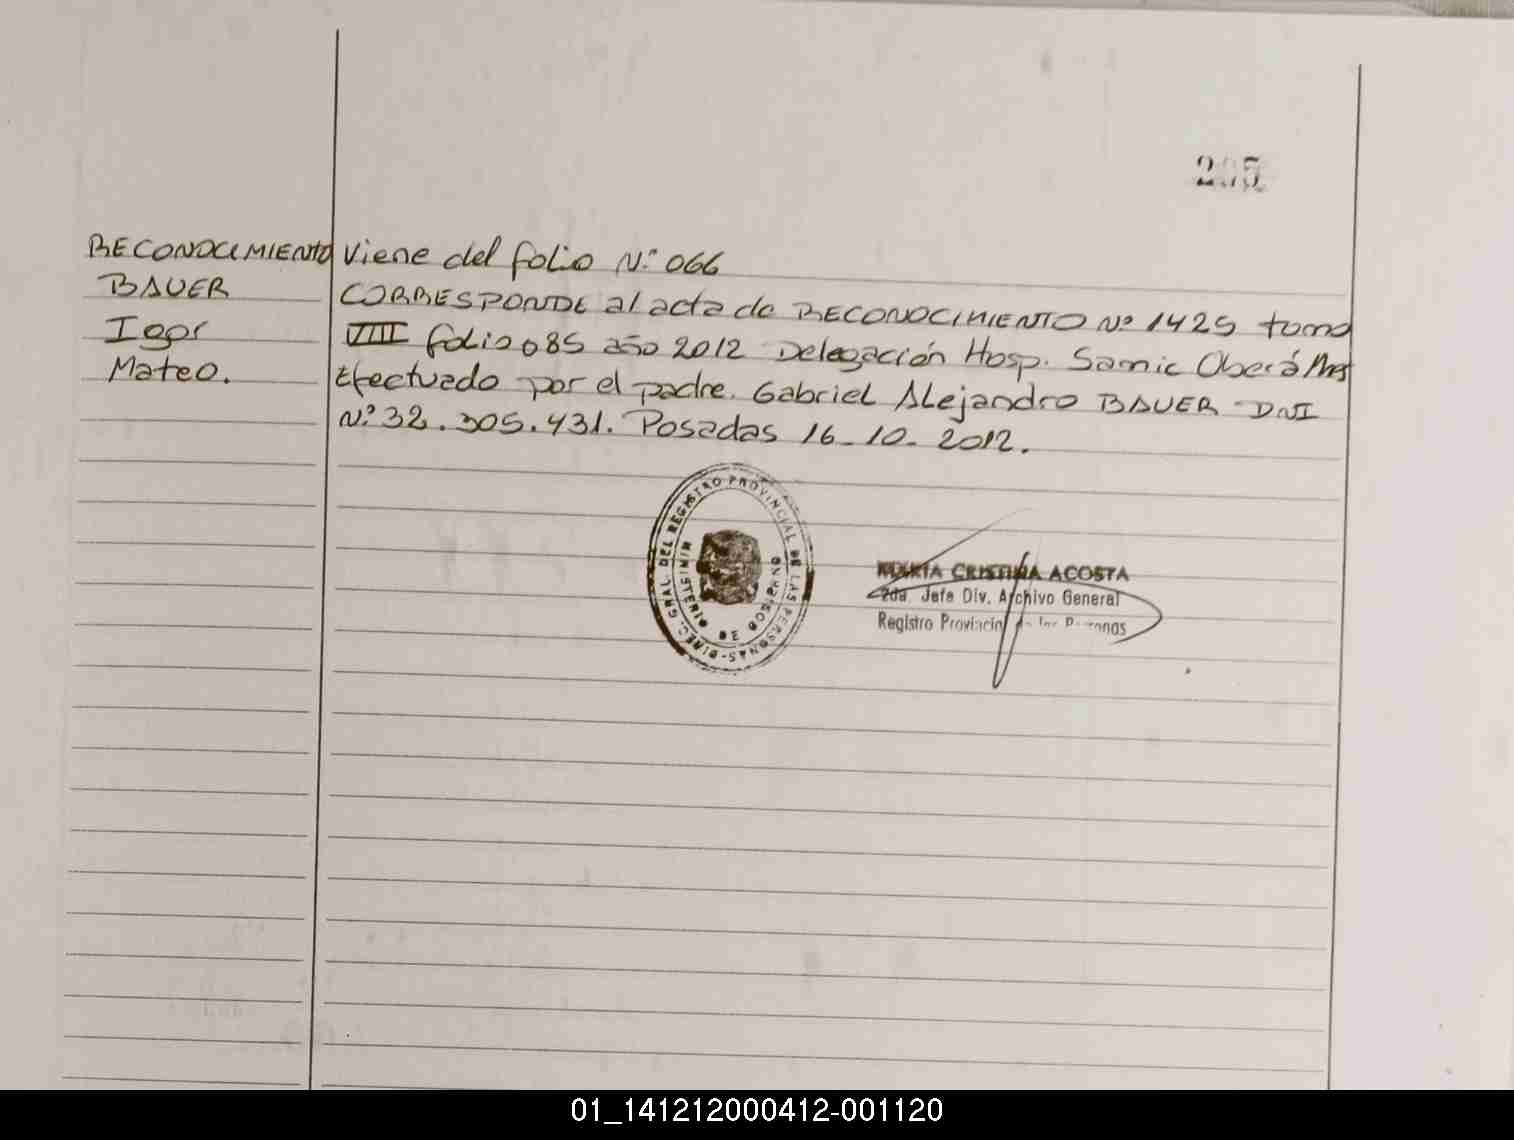 205
RECONOCIMIENTO
BAUER
Igor
Mateo.
Viene del folio N° 066
CORRESPONDE al acta de RECONOCIMIENTO N° 1425 tomo
VIII folio 085 año 2012 Delegación Hosp. Samic Oberá Mns
Efectuado por el padre. Gabriel Alejandro BAUER - DNI
N° 32.305.431. Posadas 16-10-2012.
DIREC. GRAL. DEL REGISTRO PROVINCIAL DE LAS PERSONAS
MINISTERIO DE GOBIERNO
MARIA CRISTINA ACOSTA
2da. Jefa Div. Archivo General
Registro Provincial de las Personas
01_141212000412-001120